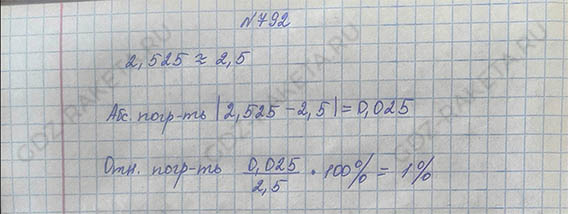 №792
2,525 ≈ 2,5
Абс. погр-ть |2,525 – 2,5| = 0,025
Отн. погр-ть 0,025/2,5 · 100% = 1%
GDZ-RAKETA.RU
GDZ-RAKETA.RU
GDZ-RAKETA.RU